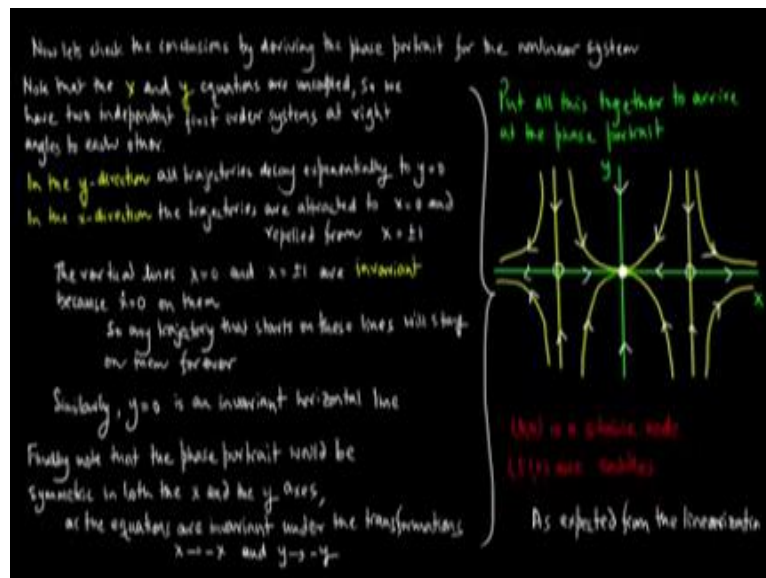 Now lets check the conclusions by deriving the phase portrait for the nonlinear system
Note that the x and y equations are uncoupled, So we
have two independent first order systems at right
angles to each other.
In the y-direction all trajectories decay exponentially to y=0
In the x-direction the trajectories are attracted to x=0 and
repelled from x=±1
The vertical lines x=0 and x=±1 are invariant
because ẋ=0 on them
So any trajectory that starts on these lines will stay
on them forever
Similarly, y=0 is an invariant horizontal line
Finally note that the phase portrait would be
symmetric in both the x and the y axes,
as the equations are invariant under the transformations
x→-x and y→-y
Put all this together to arrive
at the phase portrait
y
x
(0,0) is a stable node
(±1,0) are saddles
As expected from the linearization